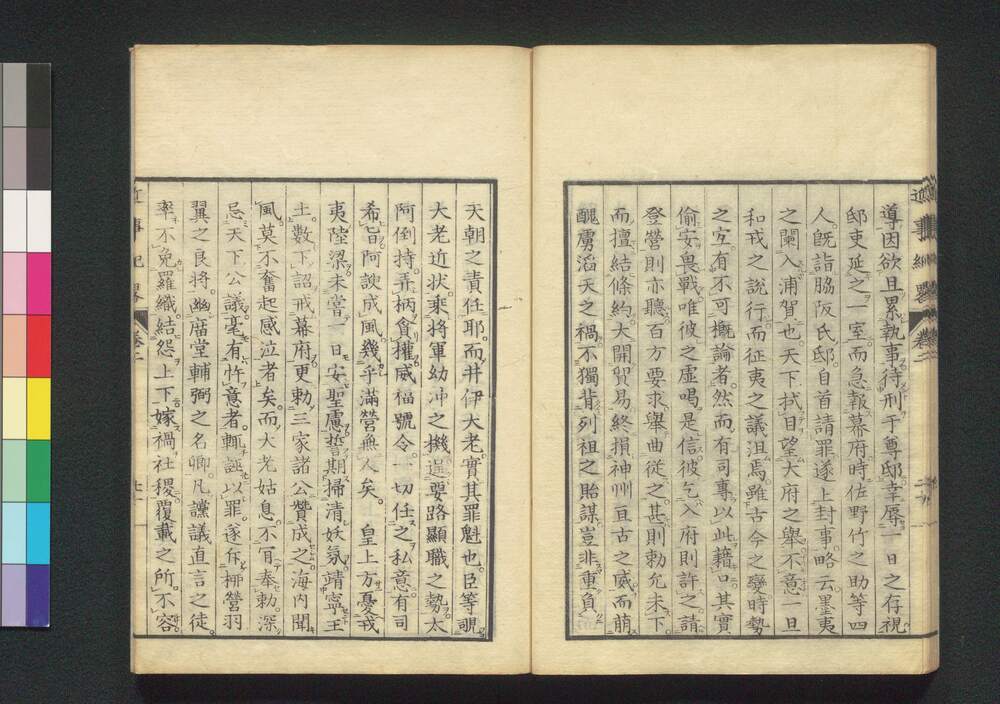 導因欲且累執事待刑于尊邸幸辱一日之存視
邸吏延之一室而急報幕府時佐野竹之助等四
人既詣脇阪氏邸自首請罪遂上封事略云墨夷
之闌入浦賀也天下拭目望大府之舉不意一旦
和戎之說行而征夷之議沮焉雖古今之變時勢
之宐有不可概論者然而有司專以此藉口其實
偷安畏戰唯彼之虛喝是信彼乞入府則許之請
登營則亦聽百方要求舉曲從之甚則勅允未下
而擅結條約大開貿易終損神州亘古之威而萠
醜虜滔天之禍不獨背列祖之貽謀豈非重負
天朝之責任耶而井伊大老實其罪魁也臣等覗
大老近狀乘將軍幼冲之機逞要路顯職之勢太
阿倒持弄柄貪權威福號令一切任之私意有司
希旨阿諛成風幾乎滿營無人矣 皇上方憂戎
夷陸梁未嘗一日安聖慮誓期掃清妖氛靖寧王
土數下詔戒幕府更勅三家諸公贊成之海內聞
風莫不奮起感泣者矣而大老姑息不肎奉勅深
忌天下公議毫有忤意者輒誣以罪遂斥柳營羽
翼之良將幽廟堂輔弼之名卿凡讜議直言之徒
率不免羅織結怨上下嫁禍社稷覆載之所不容
近事紀畧
卷二